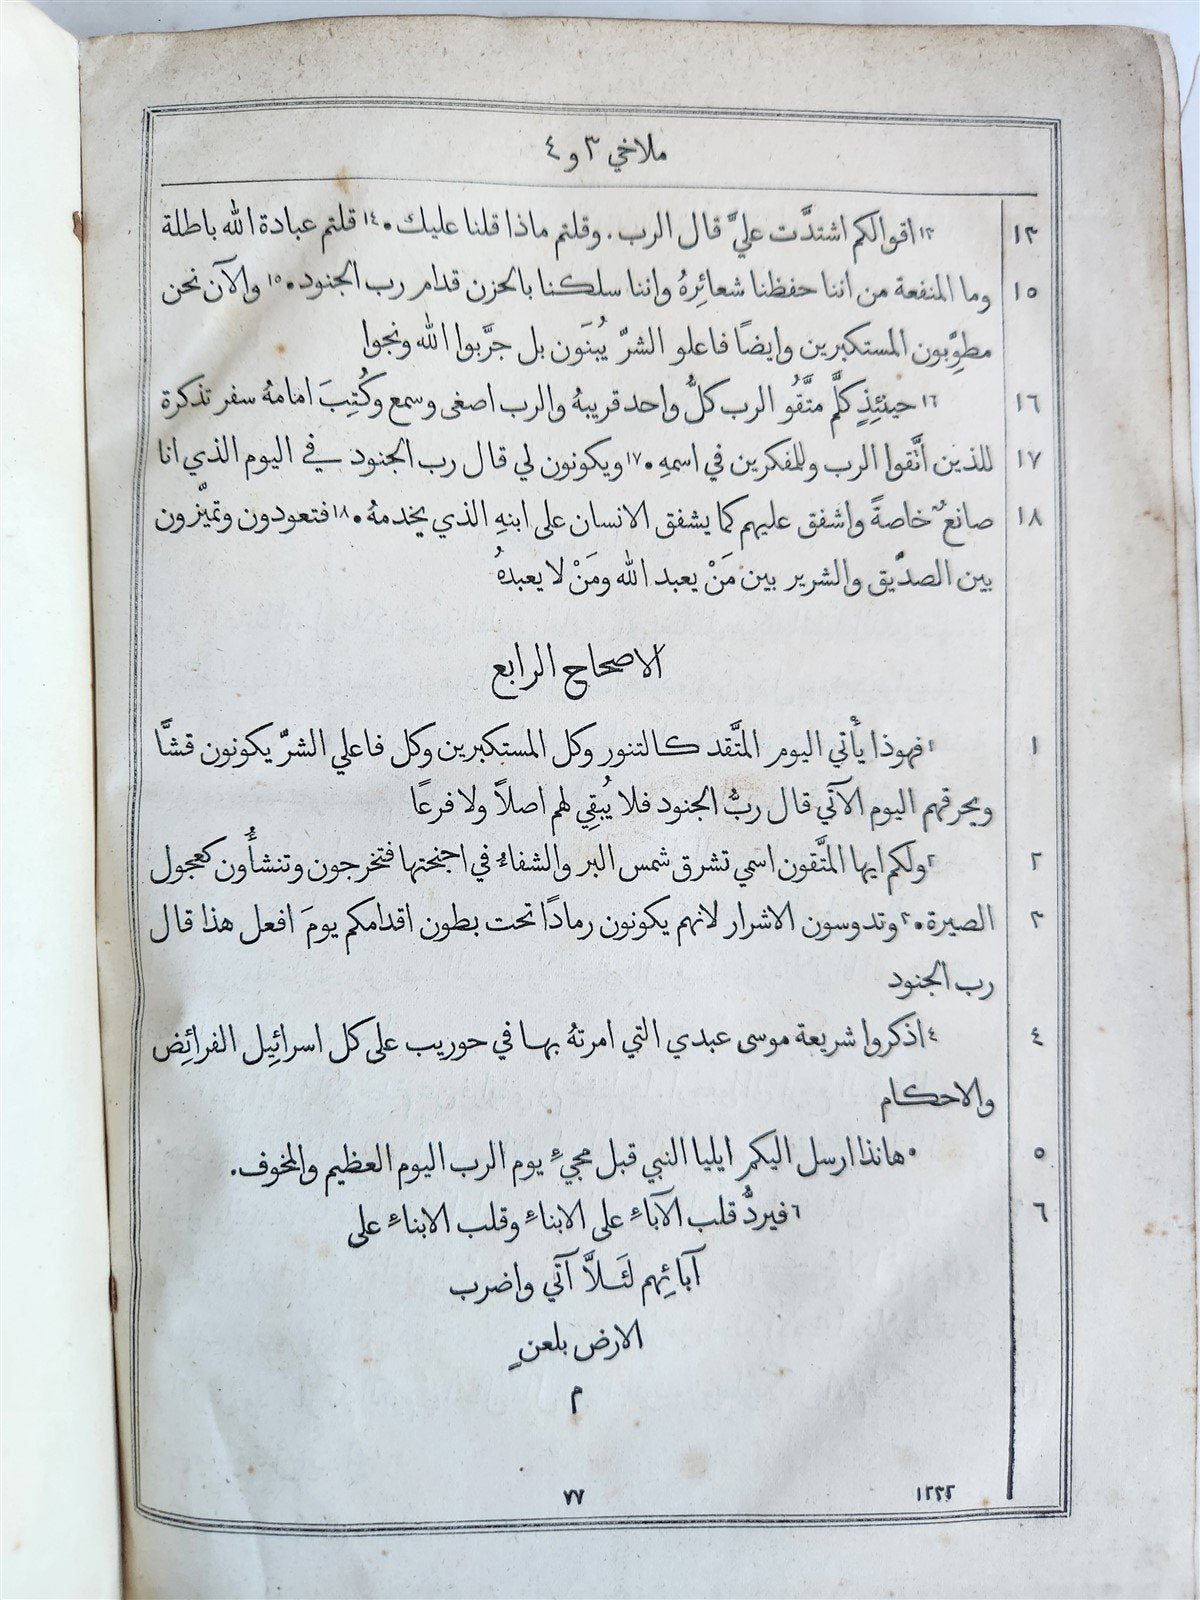 ملاخي ٣ و ٤
١٣ ١٣ اقوالكم اشتدَّت عليَّ قال الرب. وقلتم ماذا قلنا عليك. ١٤ قلتم عبادة الله باطلة
١٥ وما المنفعة من اننا حفظنا شعائرهُ واننا سلكنا بالحزن قدام رب الجنود. ١٥ والآن نحن
مطوِّبون المستكبرين وايضًا فاعلو الشرّ يُبنَون بل جرَّبوا الله ونجوا
١٦ ١٦ حينئِذٍ كلَّم متَّقُو الرب كلُّ واحد قريبهُ والرب اصغى وسمع وكُتِبَ امامهُ سفر تذكرة
١٧ للذين اتَّقوا الرب وللمفكرين في اسمهِ. ١٧ ويكونون لي قال رب الجنود في اليوم الذي انا
١٨ صانعٌ خاصةً واشفق عليهم كما يشفق الانسان على ابنهِ الذي يخدمهُ. ١٨ فتعودون وتميّزون
بين الصدّيق والشرير بين مَنْ يعبد الله ومَنْ لا يعبدهُ
الاصحاح الرابع
١ ١ فهوذا يأتي اليوم المتَّقد كالتنور وكل المستكبرين وكل فاعلي الشرّ يكونون قشًّا
ويحرقهم اليوم الآتي قال ربُّ الجنود فلا يُبقِي لهم اصلاً ولا فرعًا
٢ ٢ ولكم ايها المتَّقون اسمي تشرق شمس البر والشفاءُ في اجنحتها فتخرجون وتنشأُون كعجول
٣ الصيرة. ٣ وتدوسون الاشرار لانهم يكونون رمادًا تحت بطون اقدامكم يومَ افعل هذا قال
رب الجنود
٤ ٤ اذكروا شريعة موسى عبدي التي امرتهُ بها في حوريب على كل اسرائِيل الفرائِض
والاحكام
٥ ٥ هانذا ارسل اليكم ايليا النبي قبل مجيءِ يوم الرب اليوم العظيم والمخوف.
٦ ٦ فيردُّ قلب الآباءِ على الابناءِ وقلب الابناءِ على
آبائِهم لئَلاَّ آتي واضرب
الارض بلعنٍ
م
١٢٣٢ ٧٧